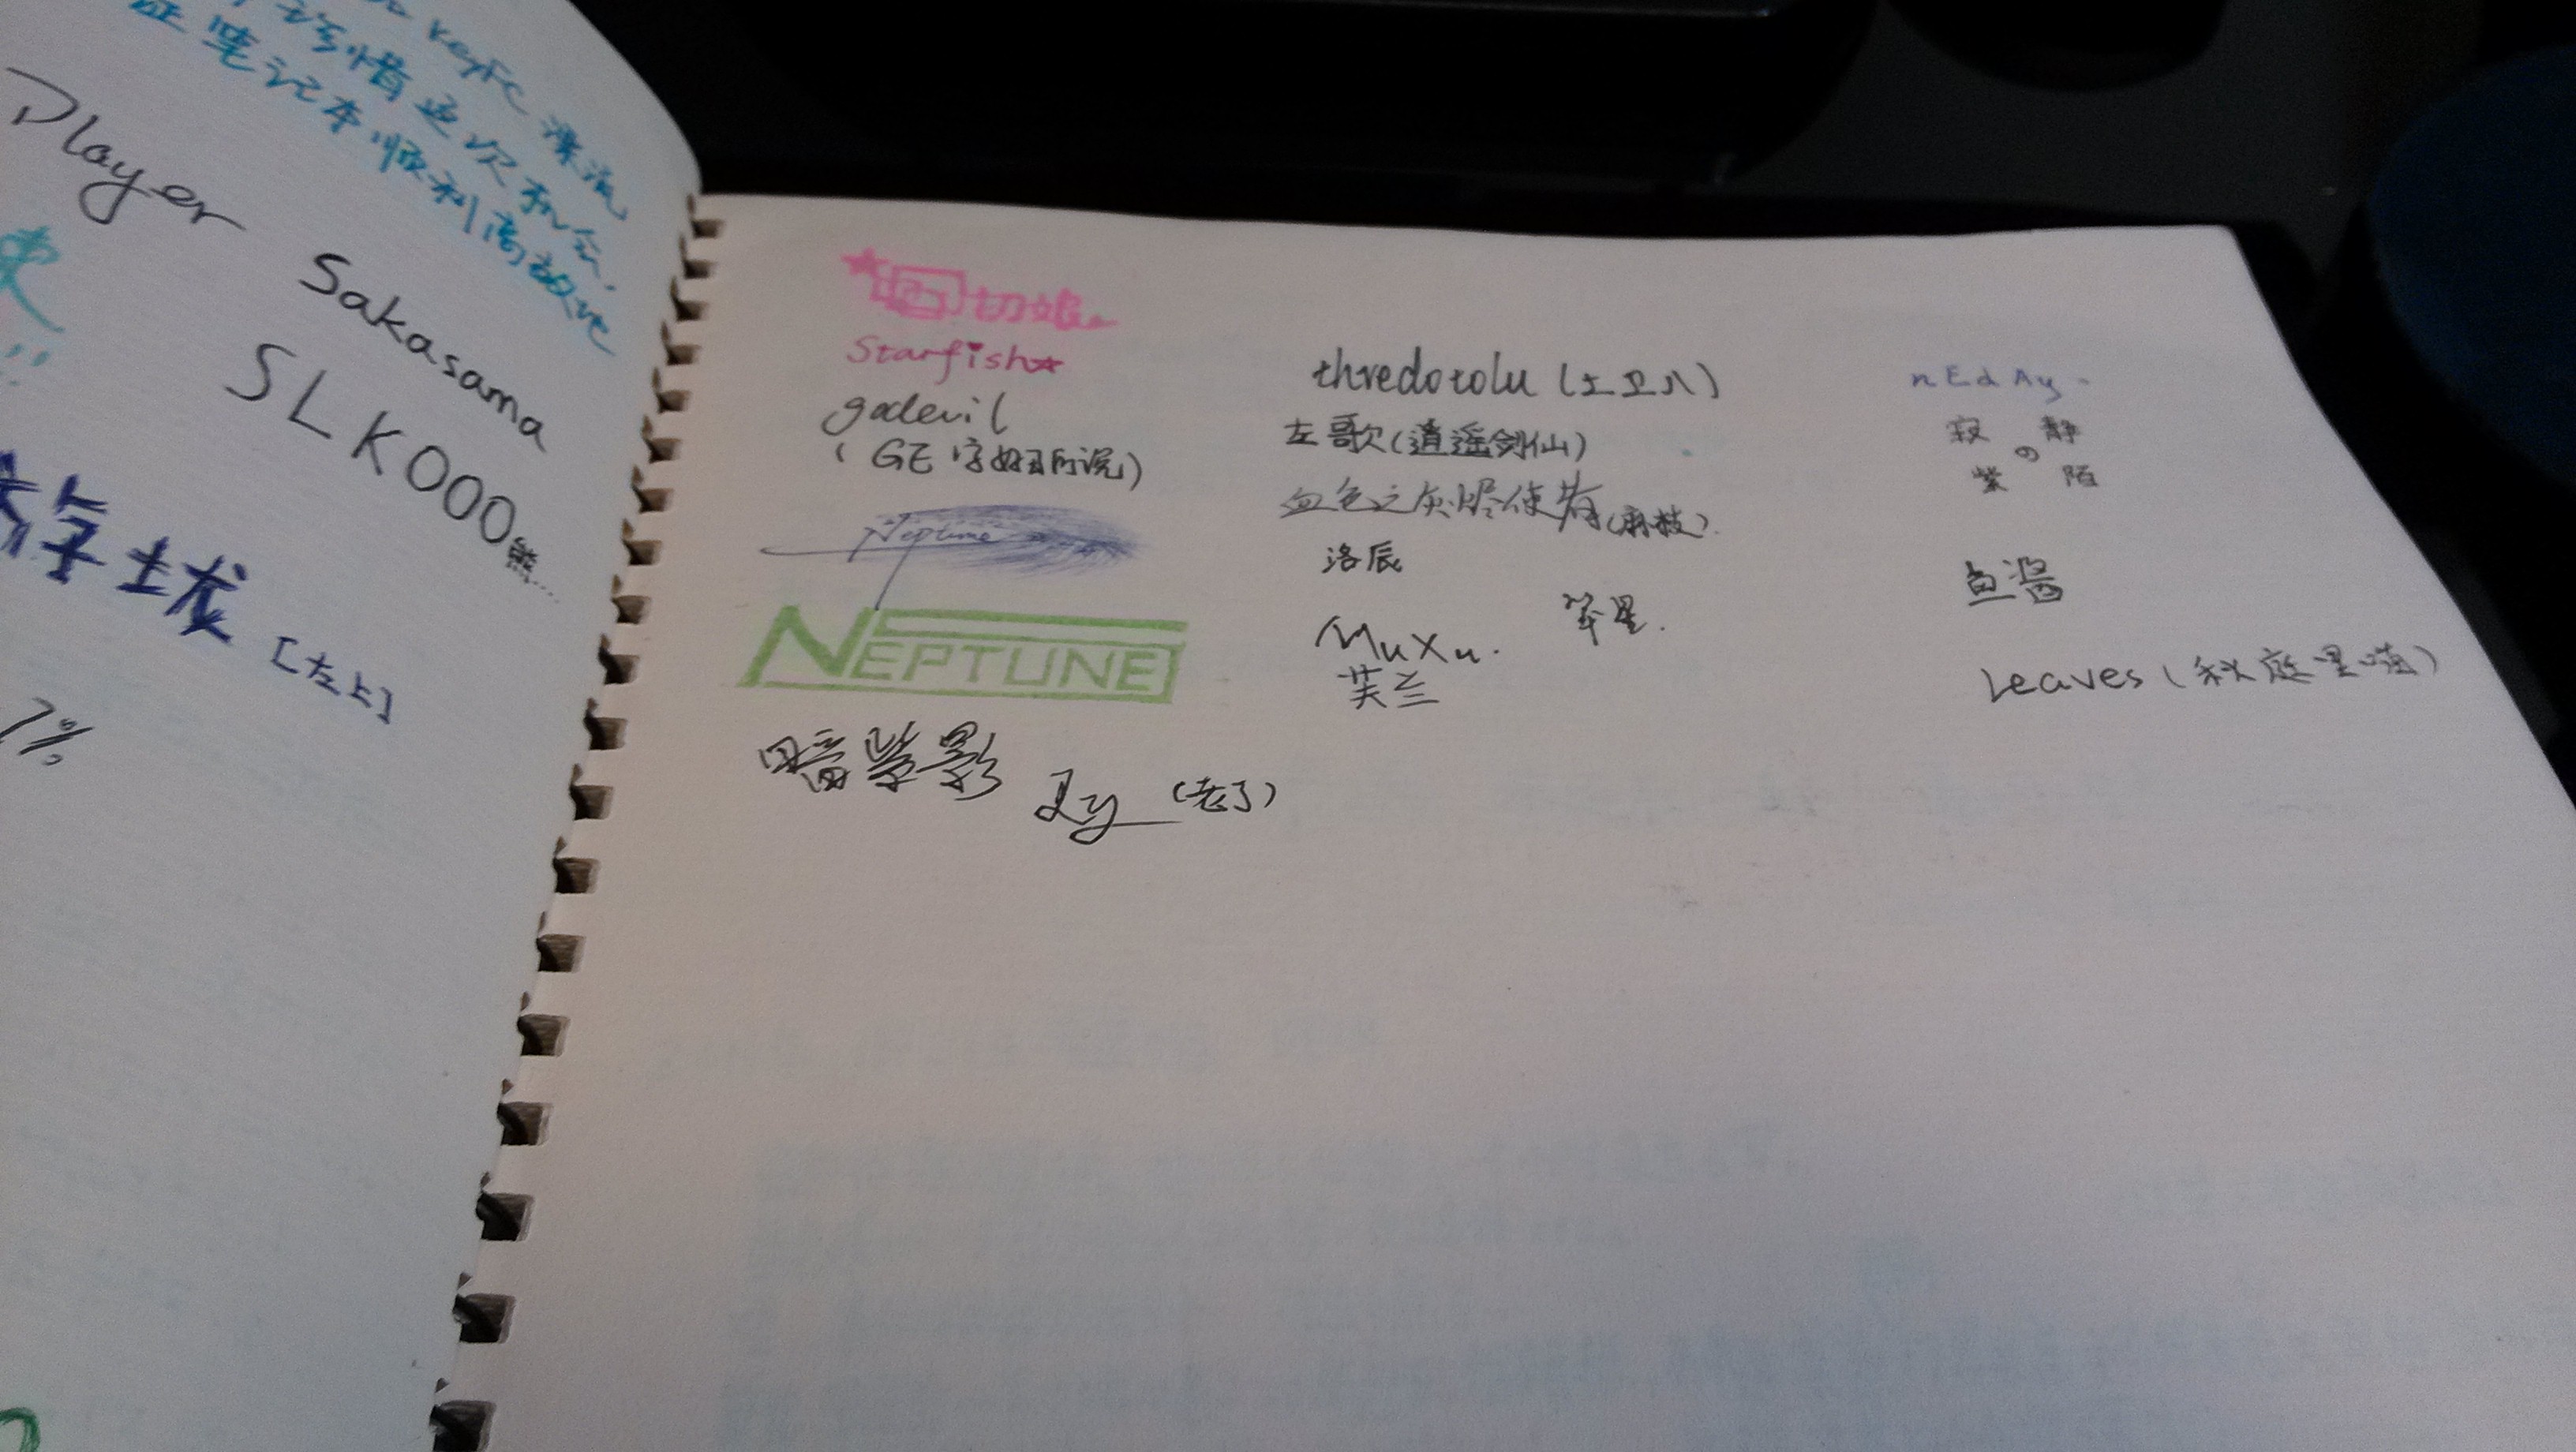 keyFc 漂流
珍惜这次机会,
证笔记本顺利高放ve
Player
Sakasama
SLK000熊...
[左上]
7%
切娘
Starfish☆
godevil
(GE 字如所说)
Neptune
NEPTUNE
暗紫影
Zy (老了)
thredotolu (土卫八)
左歌(逍遥剑仙)
血色之灰烬使者(麻枝).
洛辰
笨星.
MuXu.
芙兰
nEdAy.
寂 静
の
紫 陌
鱼酱
Leaves (秋庭里喵)